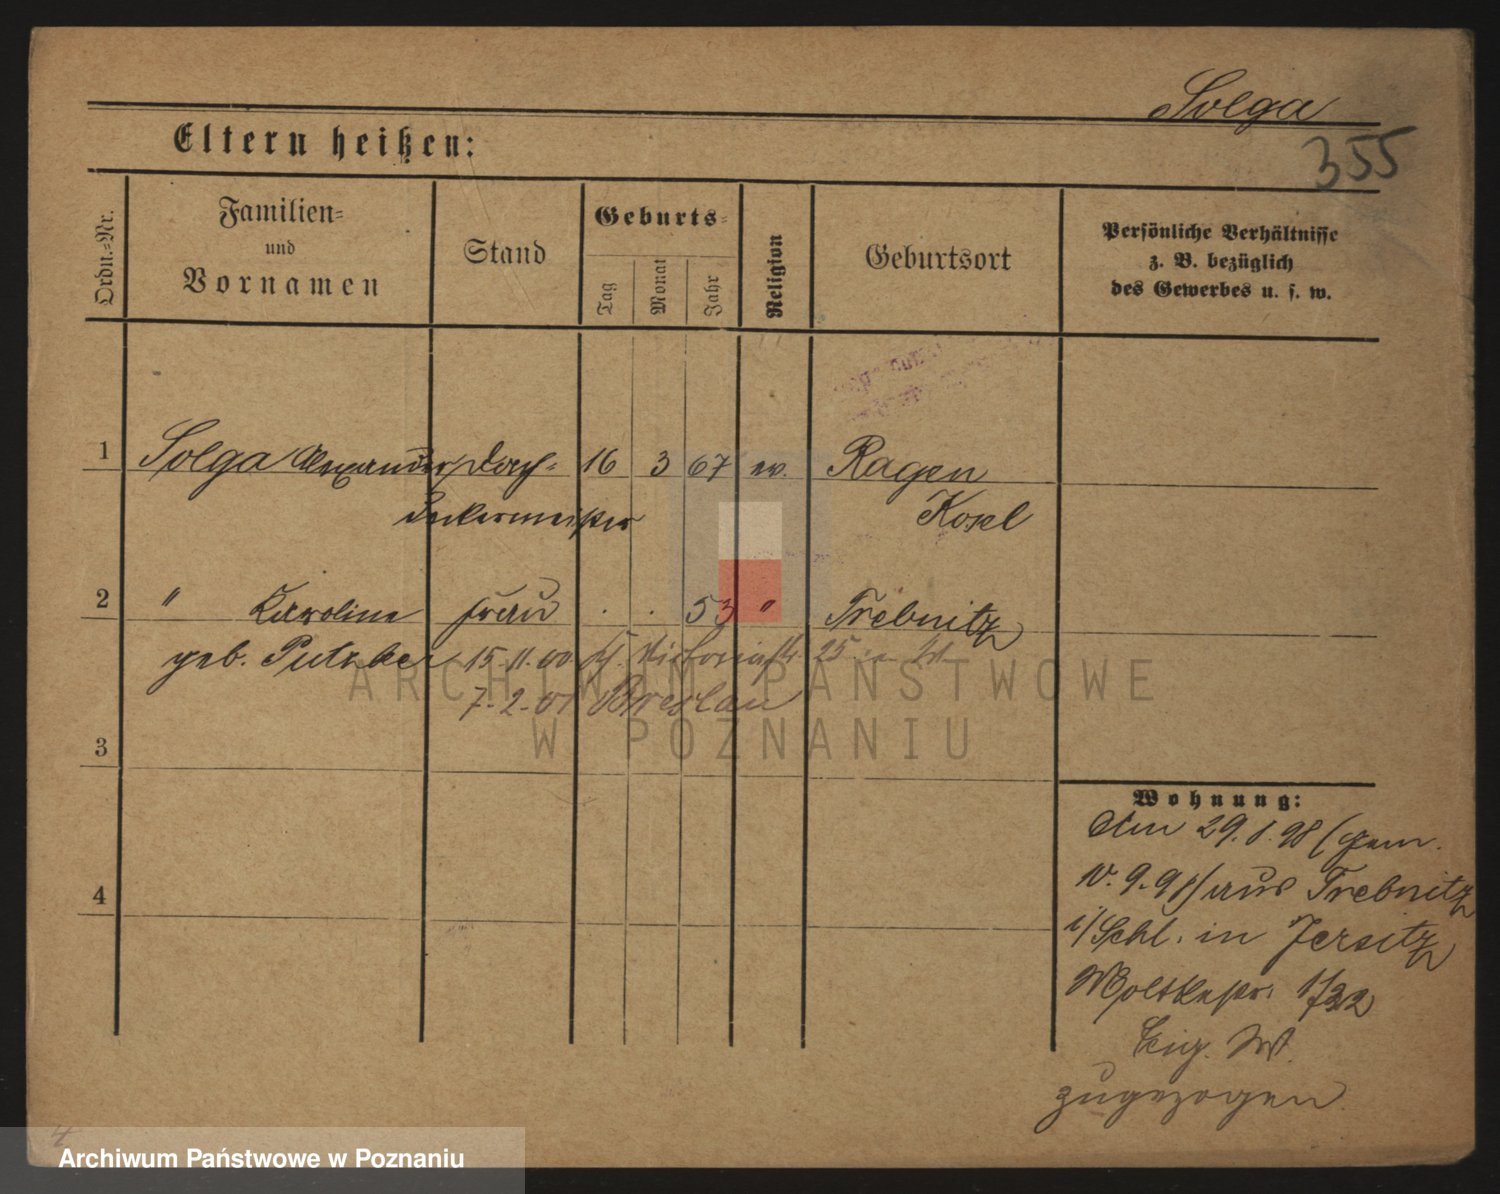 Solga
355
Eltern heißen:
Ordn.-Nr.
Familien- und Vornamen
Stand
Geburts-
Tag
Monat
Jahr
Religion
Geburtsort
Persönliche Verhältnisse
z. B. bezüglich
des Gewerbes u. s. w.
1 Solga Alexander Dach- 16 3 67 ev. Ragen
deckermeister Kosel
2 " Karoline Frau . . 53 " Trebnitz
geb. 15.11.00 Viktoriastr. 25
7.2.01 Breslau
3
4
Wohnung:
Am 29.8.98 (gem.
10.9.98) aus Trebnitz
i/Schl. in Jersitz
Moltkestr.
Eig. W.
zugezogen.
4
ARCHIWUM PAŃSTWOWE
W POZNANIU
Archiwum Państwowe w Poznaniu